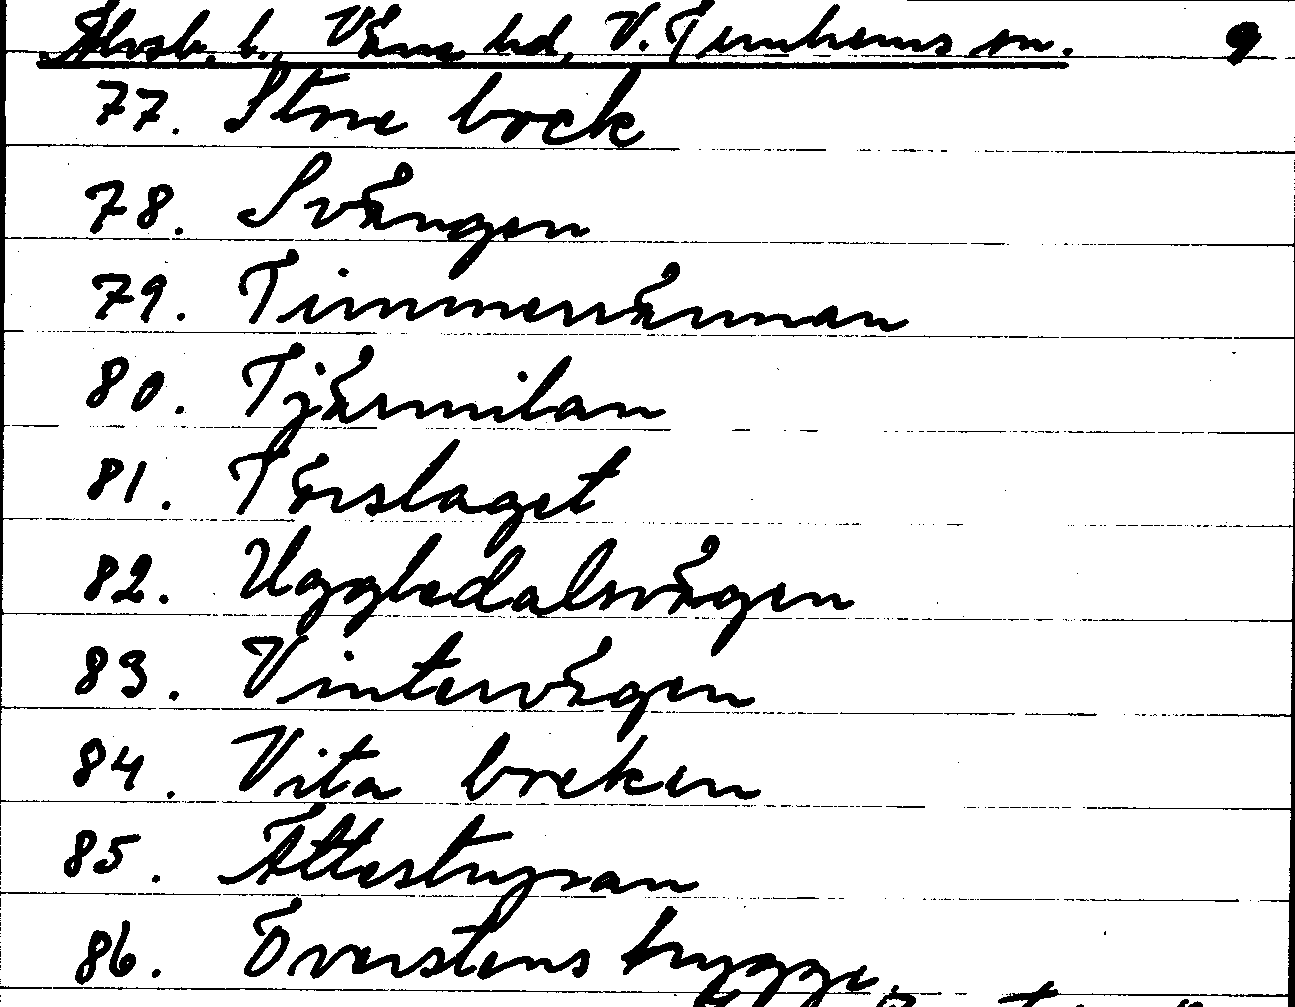 Älvsb. l., Väne hd, V. Tunhems sn. 9
77. Store bock
78. Svängen
79. Timmerrännan
80. Tjärmilan
81. Törslaget
82. Uggledalsvägen
83. Vintervägen
84. Vita brekan
85. Ättestupan
86. Överstens brygge